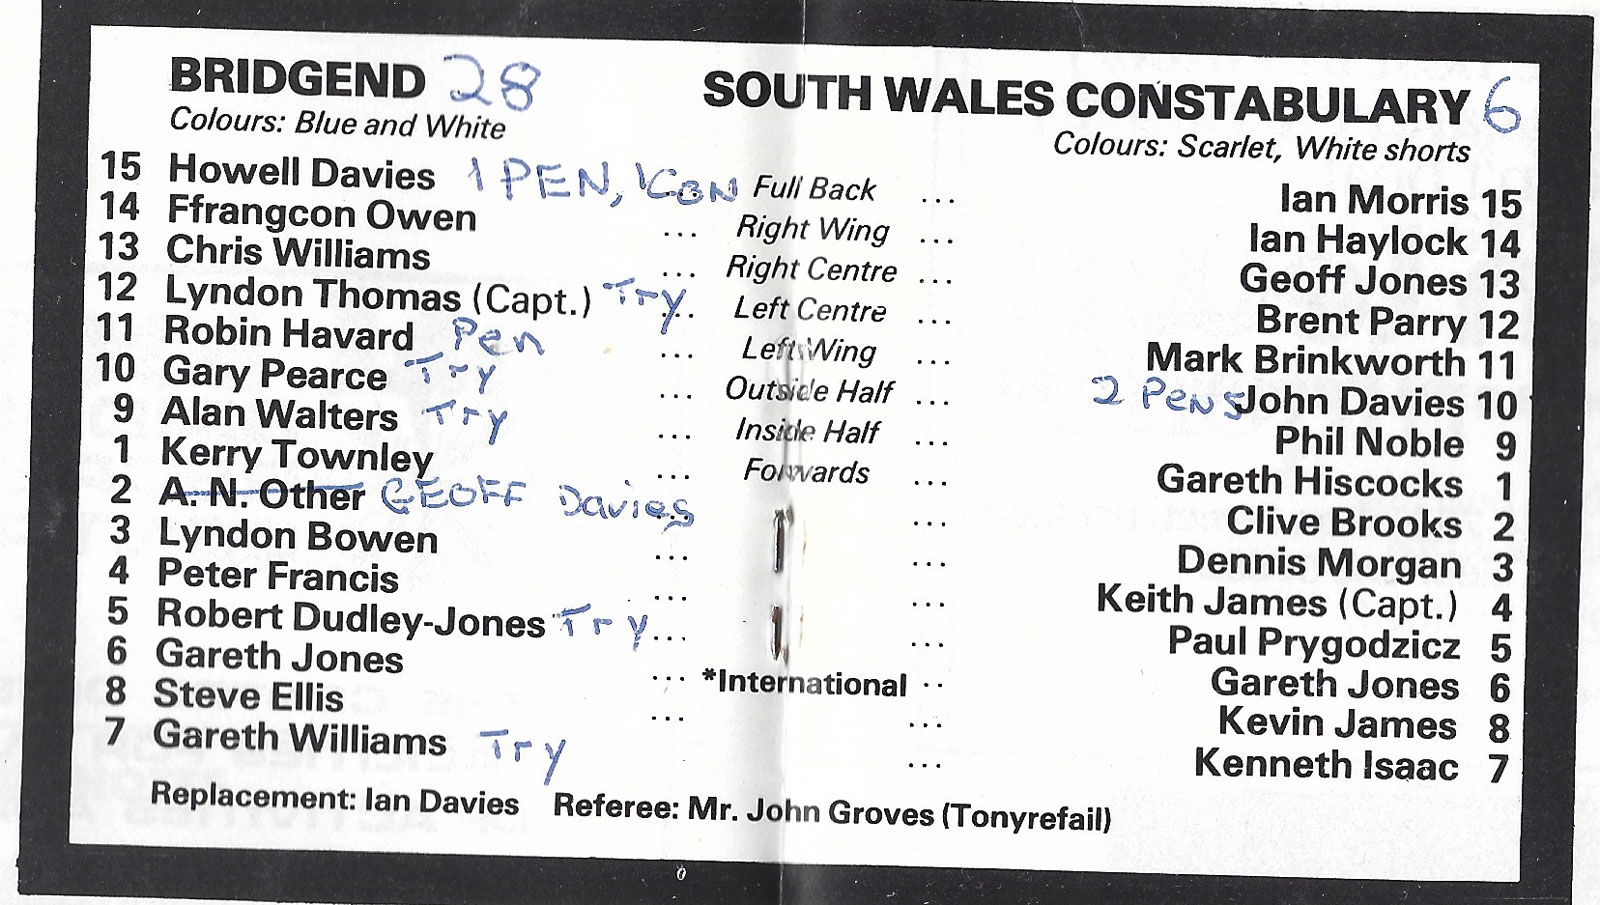 BRIDGEND 28 SOUTH WALES CONSTABULARY 6
Colours: Blue and White Colours: Scarlet, White shorts
15 Howell Davies 1 PEN, 1 CON Full Back ... Ian Morris 15
14 Ffrangcon Owen ... Right Wing ... Ian Haylock 14
13 Chris Williams ... Right Centre ... Geoff Jones 13
12 Lyndon Thomas (Capt.) Try ... Left Centre ... Brent Parry 12
11 Robin Havard Pen ... Left Wing ... Mark Brinkworth 11
10 Gary Pearce Try ... Outside Half ... 2 Pens John Davies 10
9 Alan Walters Try ... Inside Half ... Phil Noble 9
1 Kerry Townley ... Forwards ... Gareth Hiscocks 1
2 A. N. Other GEOFF Davies ... ... Clive Brooks 2
3 Lyndon Bowen ... ... Dennis Morgan 3
4 Peter Francis ... ... Keith James (Capt.) 4
5 Robert Dudley-Jones Try ... ... Paul Prygodzicz 5
6 Gareth Jones ... *International .. Gareth Jones 6
8 Steve Ellis ... ... Kevin James 8
7 Gareth Williams Try ... Kenneth Isaac 7
Replacement: Ian Davies Referee: Mr. John Groves (Tonyrefail)